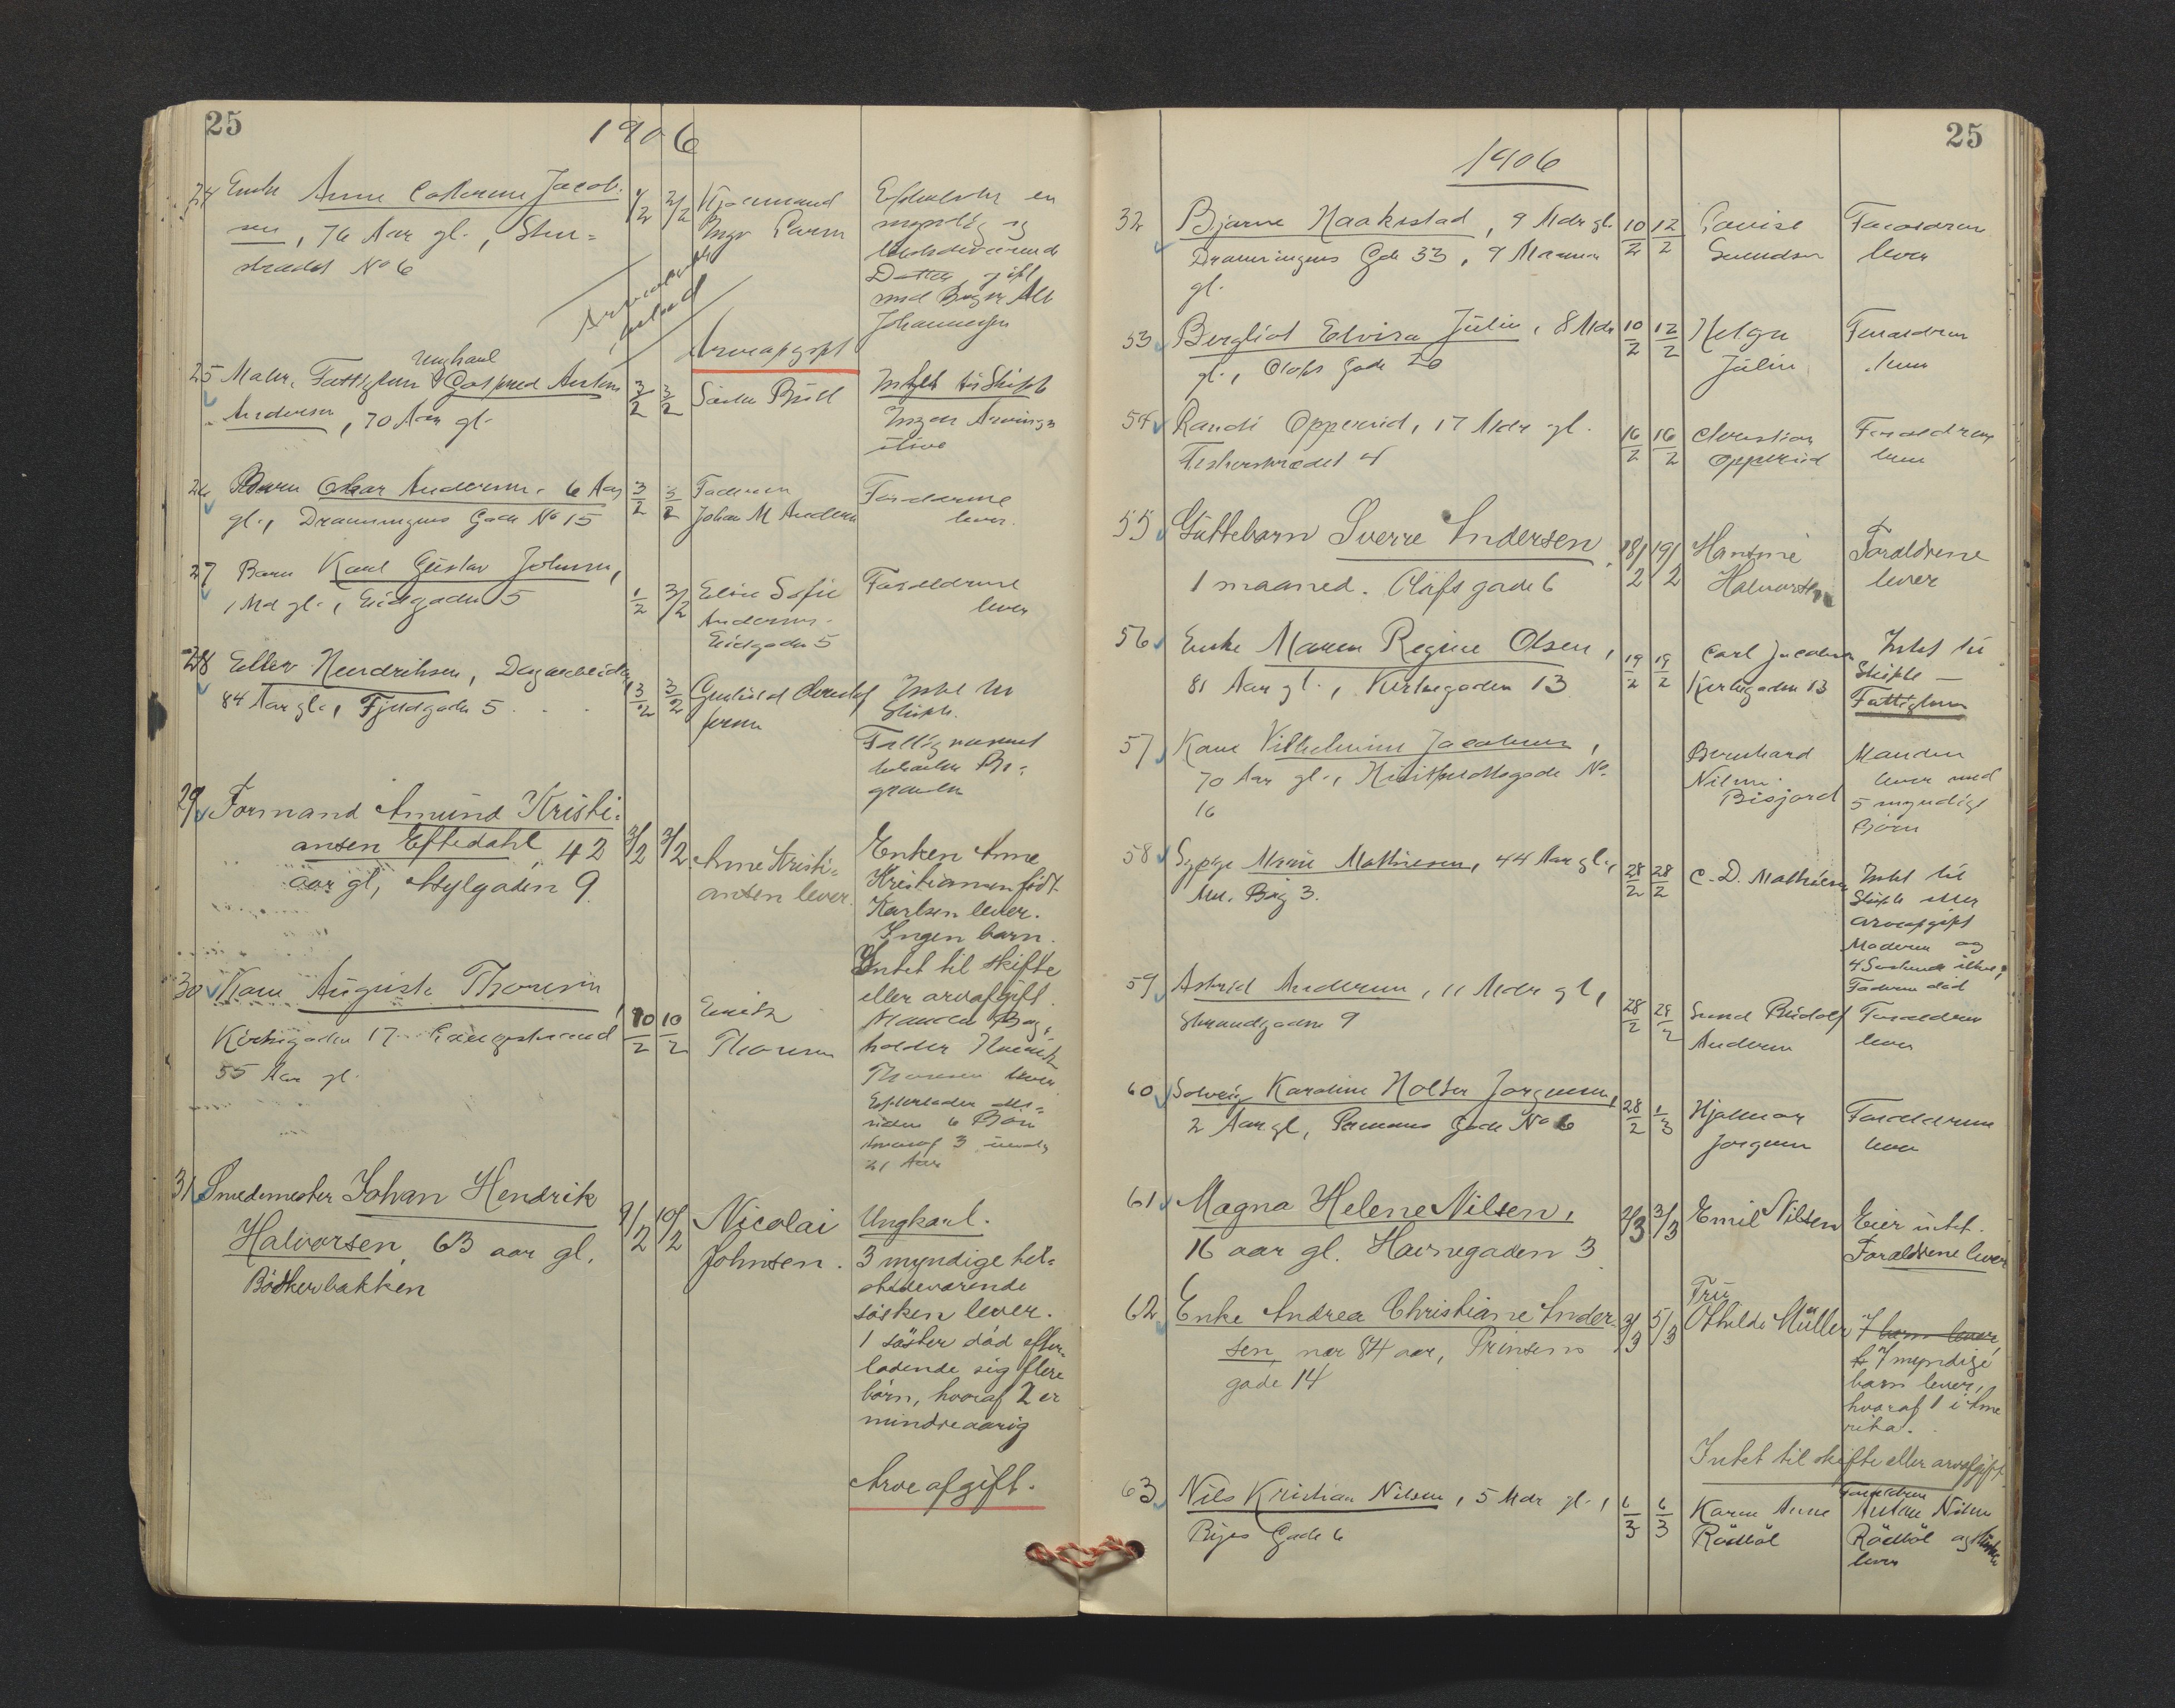 25
1906
24 Enke Anne Cathrine Jacob-
sen, 76 Aar gl., Sten=
strædet No 6
1/2 2/2
Inger Larsen
Efterlader en
myndig og
tilstedeværende
Datter, gift
med Alb
Johannesen
Arveafgift
25 Maler, Fattiglem Ungkarl Gotfred Anton
Andersen, 70 Aar gl.
3/2 3/2
Intet til Skifte
Ingen Arvinger
26 Barn Oskar Andersen, 6 Aar
gl., Dronningens Gade No 15
3/2 3/2
Faderen
Johan M Andersen
Forældrene
lever.
27 Barn Karl Gustav Johnsen,
1 Md gl., Eidgaden 5
1/2 3/2
Elise Sofie
Andersen
Eidgaden 5
Forældrene
lever
28 Ellev Hendriksen, Dagarbeider
84 Aar gl., Fjeldgaden 5
3/2 3/2
Intet til
Skifte.
Fattigvæsenet
bekoster Be-
gravelsen
29 Formand Amund Kristi=
ansen Eftedahl, 42
aar gl, Asylgaden 9.
3/2 3/2
Anne Kristi=
ansen lever.
Enken Anne
Kristiansen född
Karlsen lever.
Ingen barn.
Intet til skifte
eller arvafgift.
30 Kone Augusta Thoresen,
Kirkegaden 17 Langestrand
55 Aar gl.
10/2 10/2
Thoresen
Manden Bog-
holder Henrik
Thoresen lever
Efterlader des-
uden 6 Børn
hvoraf 3 under
21 Aar
31 Smedemester Johan Hendrik
Halvorsen, 63 aar gl.
Bödkerbakken
9/2 10/2
Nicolai
Johnsen.
Ungkarl.
3 myndige til=
stedeværende
sösken lever.
1 söster död efter-
ladende sig flere
börn, hvoraf 2 er
mindreaarig
Arveafgift.
25
1906
32 Bjarne Haakestad, 9 Mdr gl.
Dronningens Gde 33, 9 Maaneder
gl.
10/2 12/2
Lovise
Svendsen
Forældrene
lever
53 Bergliot Elvira Julin, 8 Mdr
gl., Olafs Gade 20
10/2 12/2
Helga
Julin
Forældrene
lever
54 Randi Opperud, 17 Mdr gl.
Fiskerstrædet 4
16/2 16/2
Christian
Opperud
Forældrene
lever
55 Guttebarn Sverre Andersen,
1 maaned. Olafs gade 6
18/2 19/2
Hansine
Halvorsen
Foraldrene
lever
56 Enke Maren Regine Olsen,
81 Aar gl., Kirkegaden 13
19/2 19/2
Carl Jacobsen
Kirkegaden 13
Intet til
Skifte —
Fattiglem
57 Kone Vilhelmine Jacobsen,
70 Aar gl., Hvitfeldtsgade No.
16
Bernhard
Nilsen
Bisjord
Manden
lever med
5 myndige
Børn
58 Sypige Marie Mathiesen, 44 Aar gl.,
28/2 28/2
C. D. Mathiesen
Intet til
Skifte eller
arveafgift
Moderen og
4 Søskende ilive,
Faderen død
59 Astrid Andersen, 11 Mdr gl,
Strandgaden 9
28/2 28/2
Rudolf
Andersen
Forældrene
lever
60 Solveig Karoline Holter Jørgensen,
2 Aar gl, Prinsens Gade No 6
28/2 1/3
Hjalmar
Jørgensen
Forældrene
lever
61 Magna Helene Nilsen,
16 aar gl. Havnegaden 3.
2/3 3/3
Emil Nilsen
Eier intet.
Foraldrene lever
62 Enke Andrea Christiane Ander-
sen, nær 84 aar, Prinsens
gade 14
3/3 5/3
Othilde Müller
7 barn lever,
7 myndige
barn lever,
hvoraf 1 i Ame
rika.
Intet til skifte eller arvafgift
63 Nils Kristian Nilsen, 5 Mdr gl.,
Gade 6
6/3 6/3
Karen Anne
Rödböl
Forældrene
Anton Nilsen
Rödböl og Hustru
lever